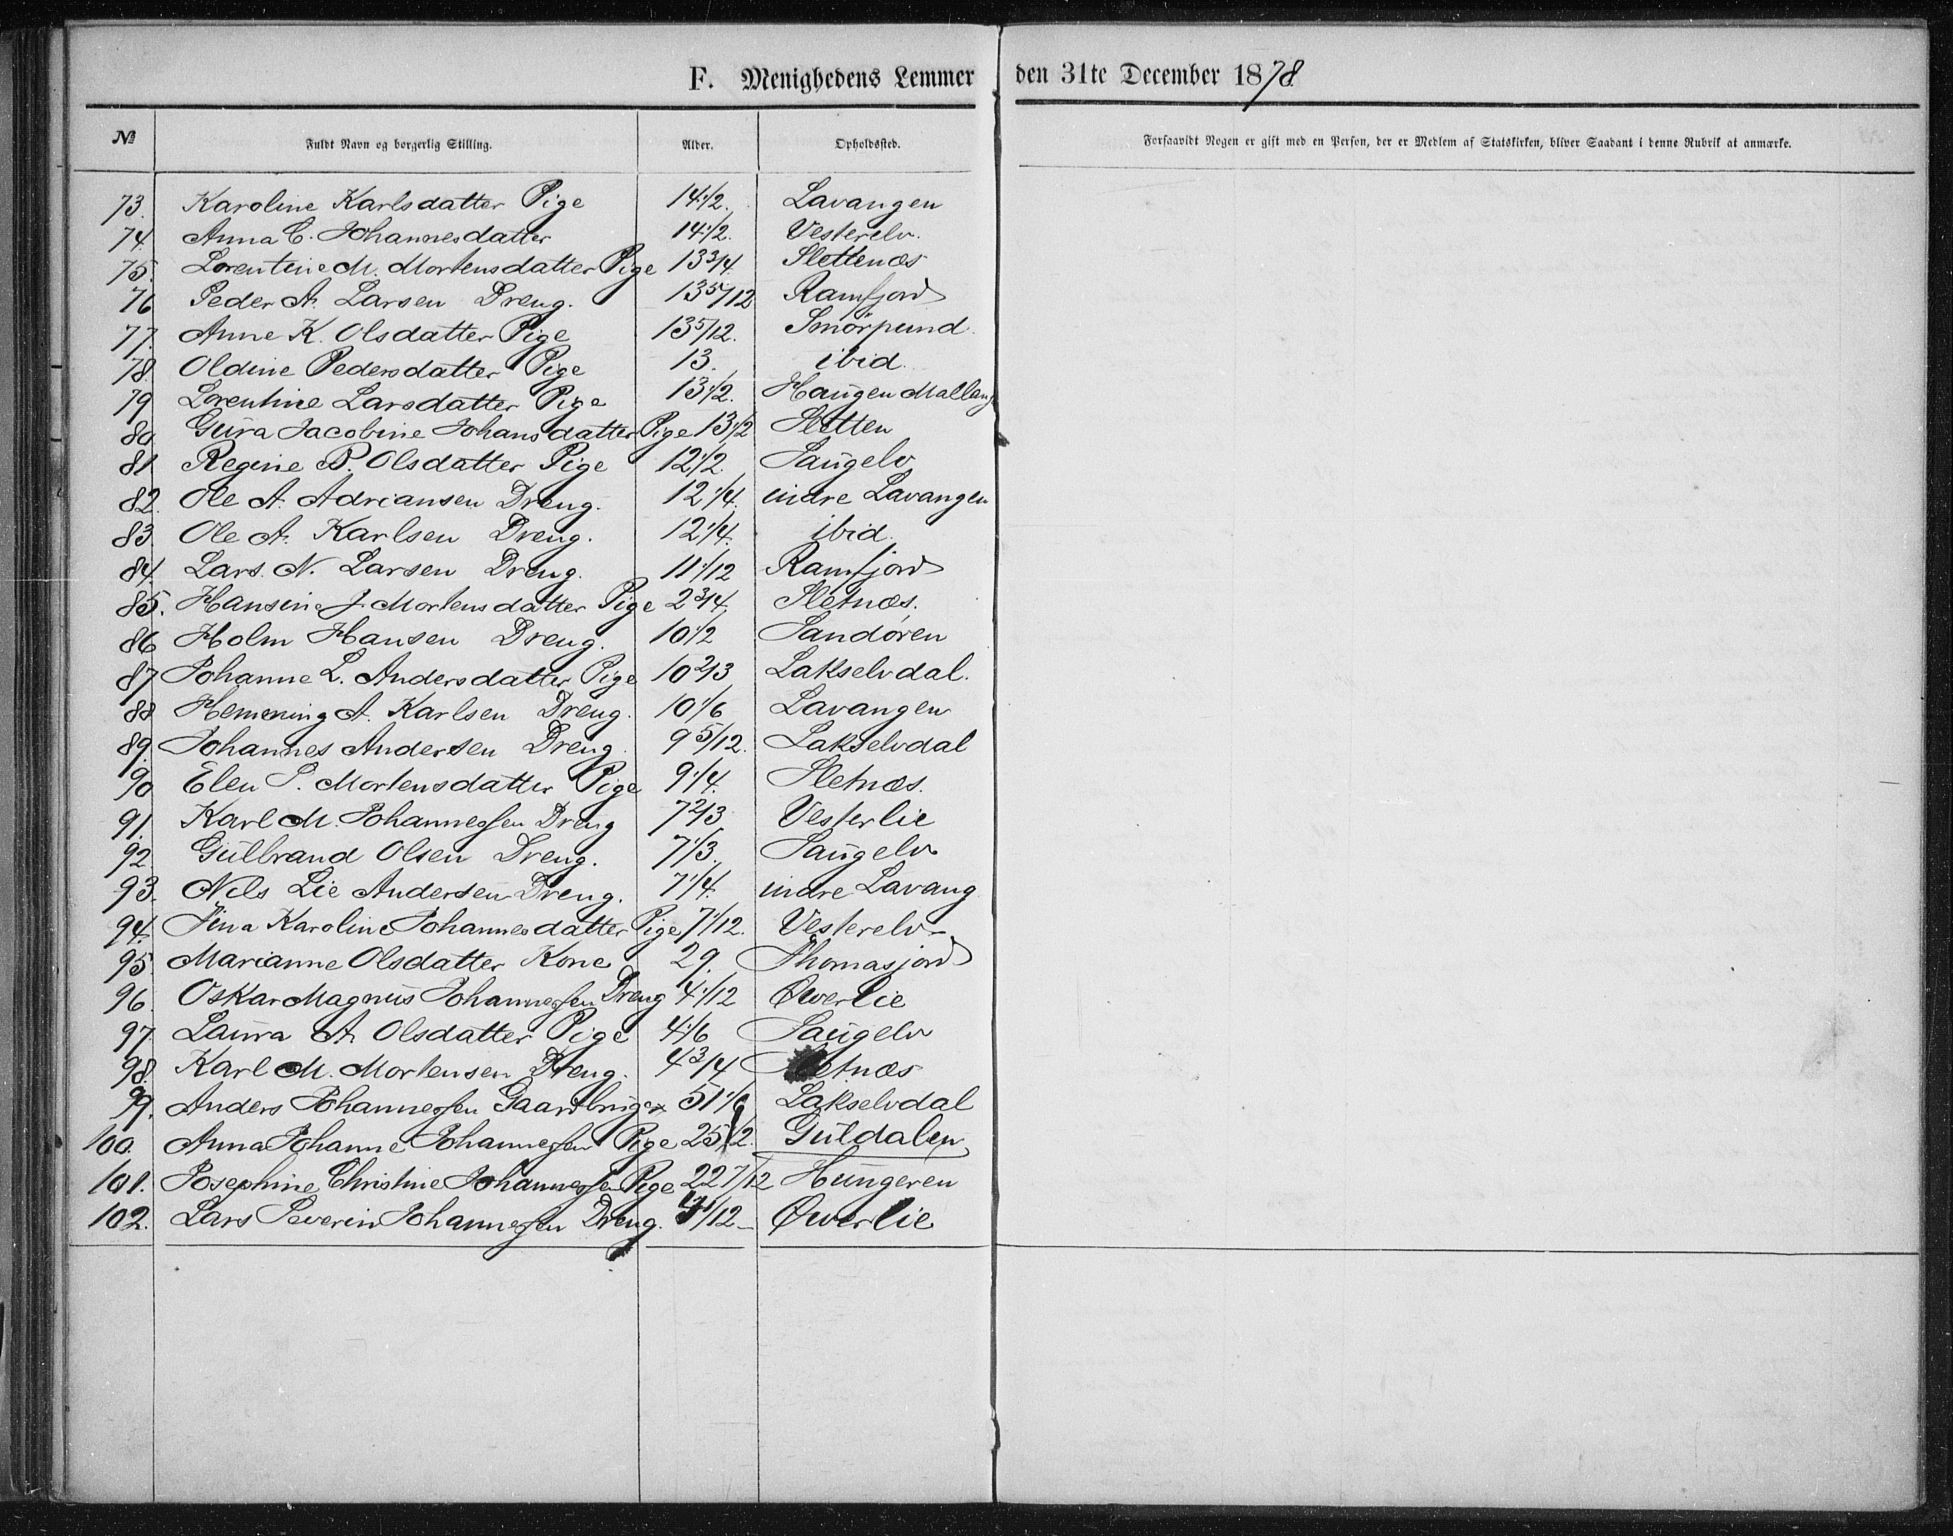 F. Menighedens Lemmer den 31te December 1878.
№ Fuldt Navn og borgerlig Stilling. Alder. Opholdssted. Forsaavidt Nogen er gift med en Person, der er Medlem af Statskirken, bliver Saadant i denne Rubrik at anmærke.
73. Karoline Karlsdatter Pige 14 1/2. Lavangen
74. Anna C. Johannesdatter 14 1/2. Vesterelv.
75. Lorentine M. Mortensdatter Pige 13 3/4. Slettenæs
76 Peder A. Larsen Dreng. 13 5/12 Ramfjord
77. Anne K. Olsdatter Pige 13 5/12. Smörpund
78. Oldine Pedersdatter Pige 13. ibid.
79. Lorentine Larsdatter Pige 13 1/2. Haugen Mallang
80. Gura Jacobine Johansdatter Pige 13 1/2 Sletten
81. Regine P. Olsdatter Pige 12 1/2. Saugelv
82. Ole A. Adriansen Dreng. 12 1/4. indre Lavangen
83. Ole A. Karlsen Dreng. 12 1/4. ibid.
84. Lars N. Larsen Dreng. 11 1/12 Ramfjord
85. Hansine J. Mortensdatter Pige 2 3/4. Sletnæs.
86 Holm Hansen Dreng. 10 1/2 Sandøren
87. Johanne L. Andersdatter Pige 10 2/3 Lakselvdal.
88. Hemming A. Karlsen Dreng. 10 1/6 Lavangen
89. Johannes Andersen Dreng. 9 5/12. Lakselvdal
90 Elen S. Mortensdatter Pige 9 1/4. Sletnæs.
91. Karl M. Johannessen Dreng 7 2/3 Vesterlie
92. Gulbrand Olsen Dreng. 7 1/3. Saugelv
93. Nils Lie Andersen Dreng. 7 1/4. indre Lavang
94. Jina Karoline Johannesdatter Pige 7 1/12. Vesterelv
95. Marianne Olsdatter Kone 29. Thomasjord
96. Oskar Magnus Johannessen Dreng 4 1/12 Øverlie
97. Laura A. Olsdatter Pige 4 1/6 Saugelv
98. Karl M. Mortensen Dreng. 4 3/4 Sletnæs
99. Anders Johannessen Gaardbruger 51 1/6 Lakselvdal
100. Anna Johanne Johannessen Pige 25 1/2. Guldalen
101. Josephine Christine Johannessen Pige 22 7/12 Hungeren
102. Lars Severin Johannessen Dreng. 1/12 Øverlie